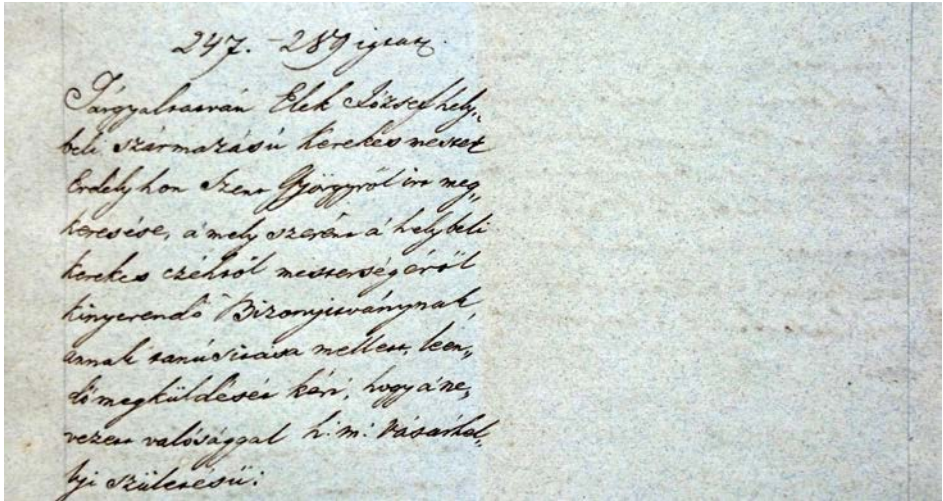 247. - 289 igtat.
Tárgyaltatván Elek József hely„
beli származású kerekes mester
Erdély hon Szent Györgyről irt meg„
keresése, a mely szerént a helybeli
kerekes czéhtől mesterségéről
kinyerendő Bizonyitványnak,
annak tanúsitása mellett, leen„
dő megküldését kéri, hogy á ne„
vezett valósággal h: m: Vásárhel„
lyi születésű: